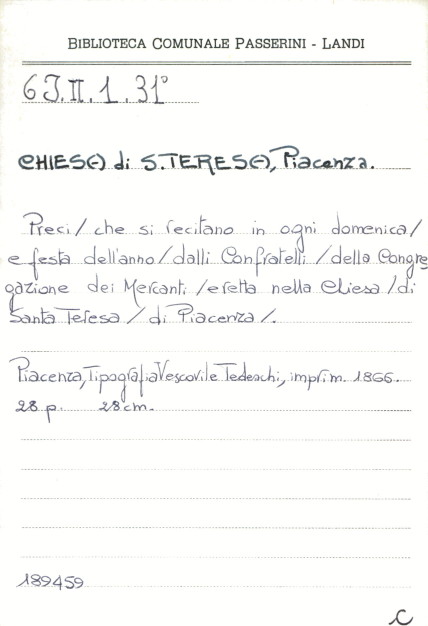 BIBLIOTECA COMUNALE PASSERINI - LANDI
6J.II.1.31°
CHIESA di S.TERESA, Piacenza.
Preci / che si recitano in ogni domenica /
e festa dell'anno / dalli Confratelli / della Congre
gazione dei Mercanti / eretta nella Chiesa / di
Santa Teresa / di Piacenza /.
Piacenza, Tipografia Vescovile Tedeschi, imprim. 1866.
28 p. 28cm.
189459
C